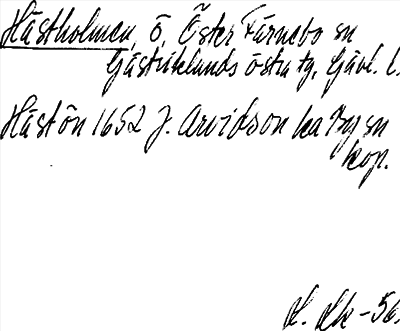 Hästholmen, ö, Öster Färnebo sn
Gästriklands östra tg, Gävl. l.
Hästön 1652 J. Arvidson ka By sn
kop.
L. Lk -56.